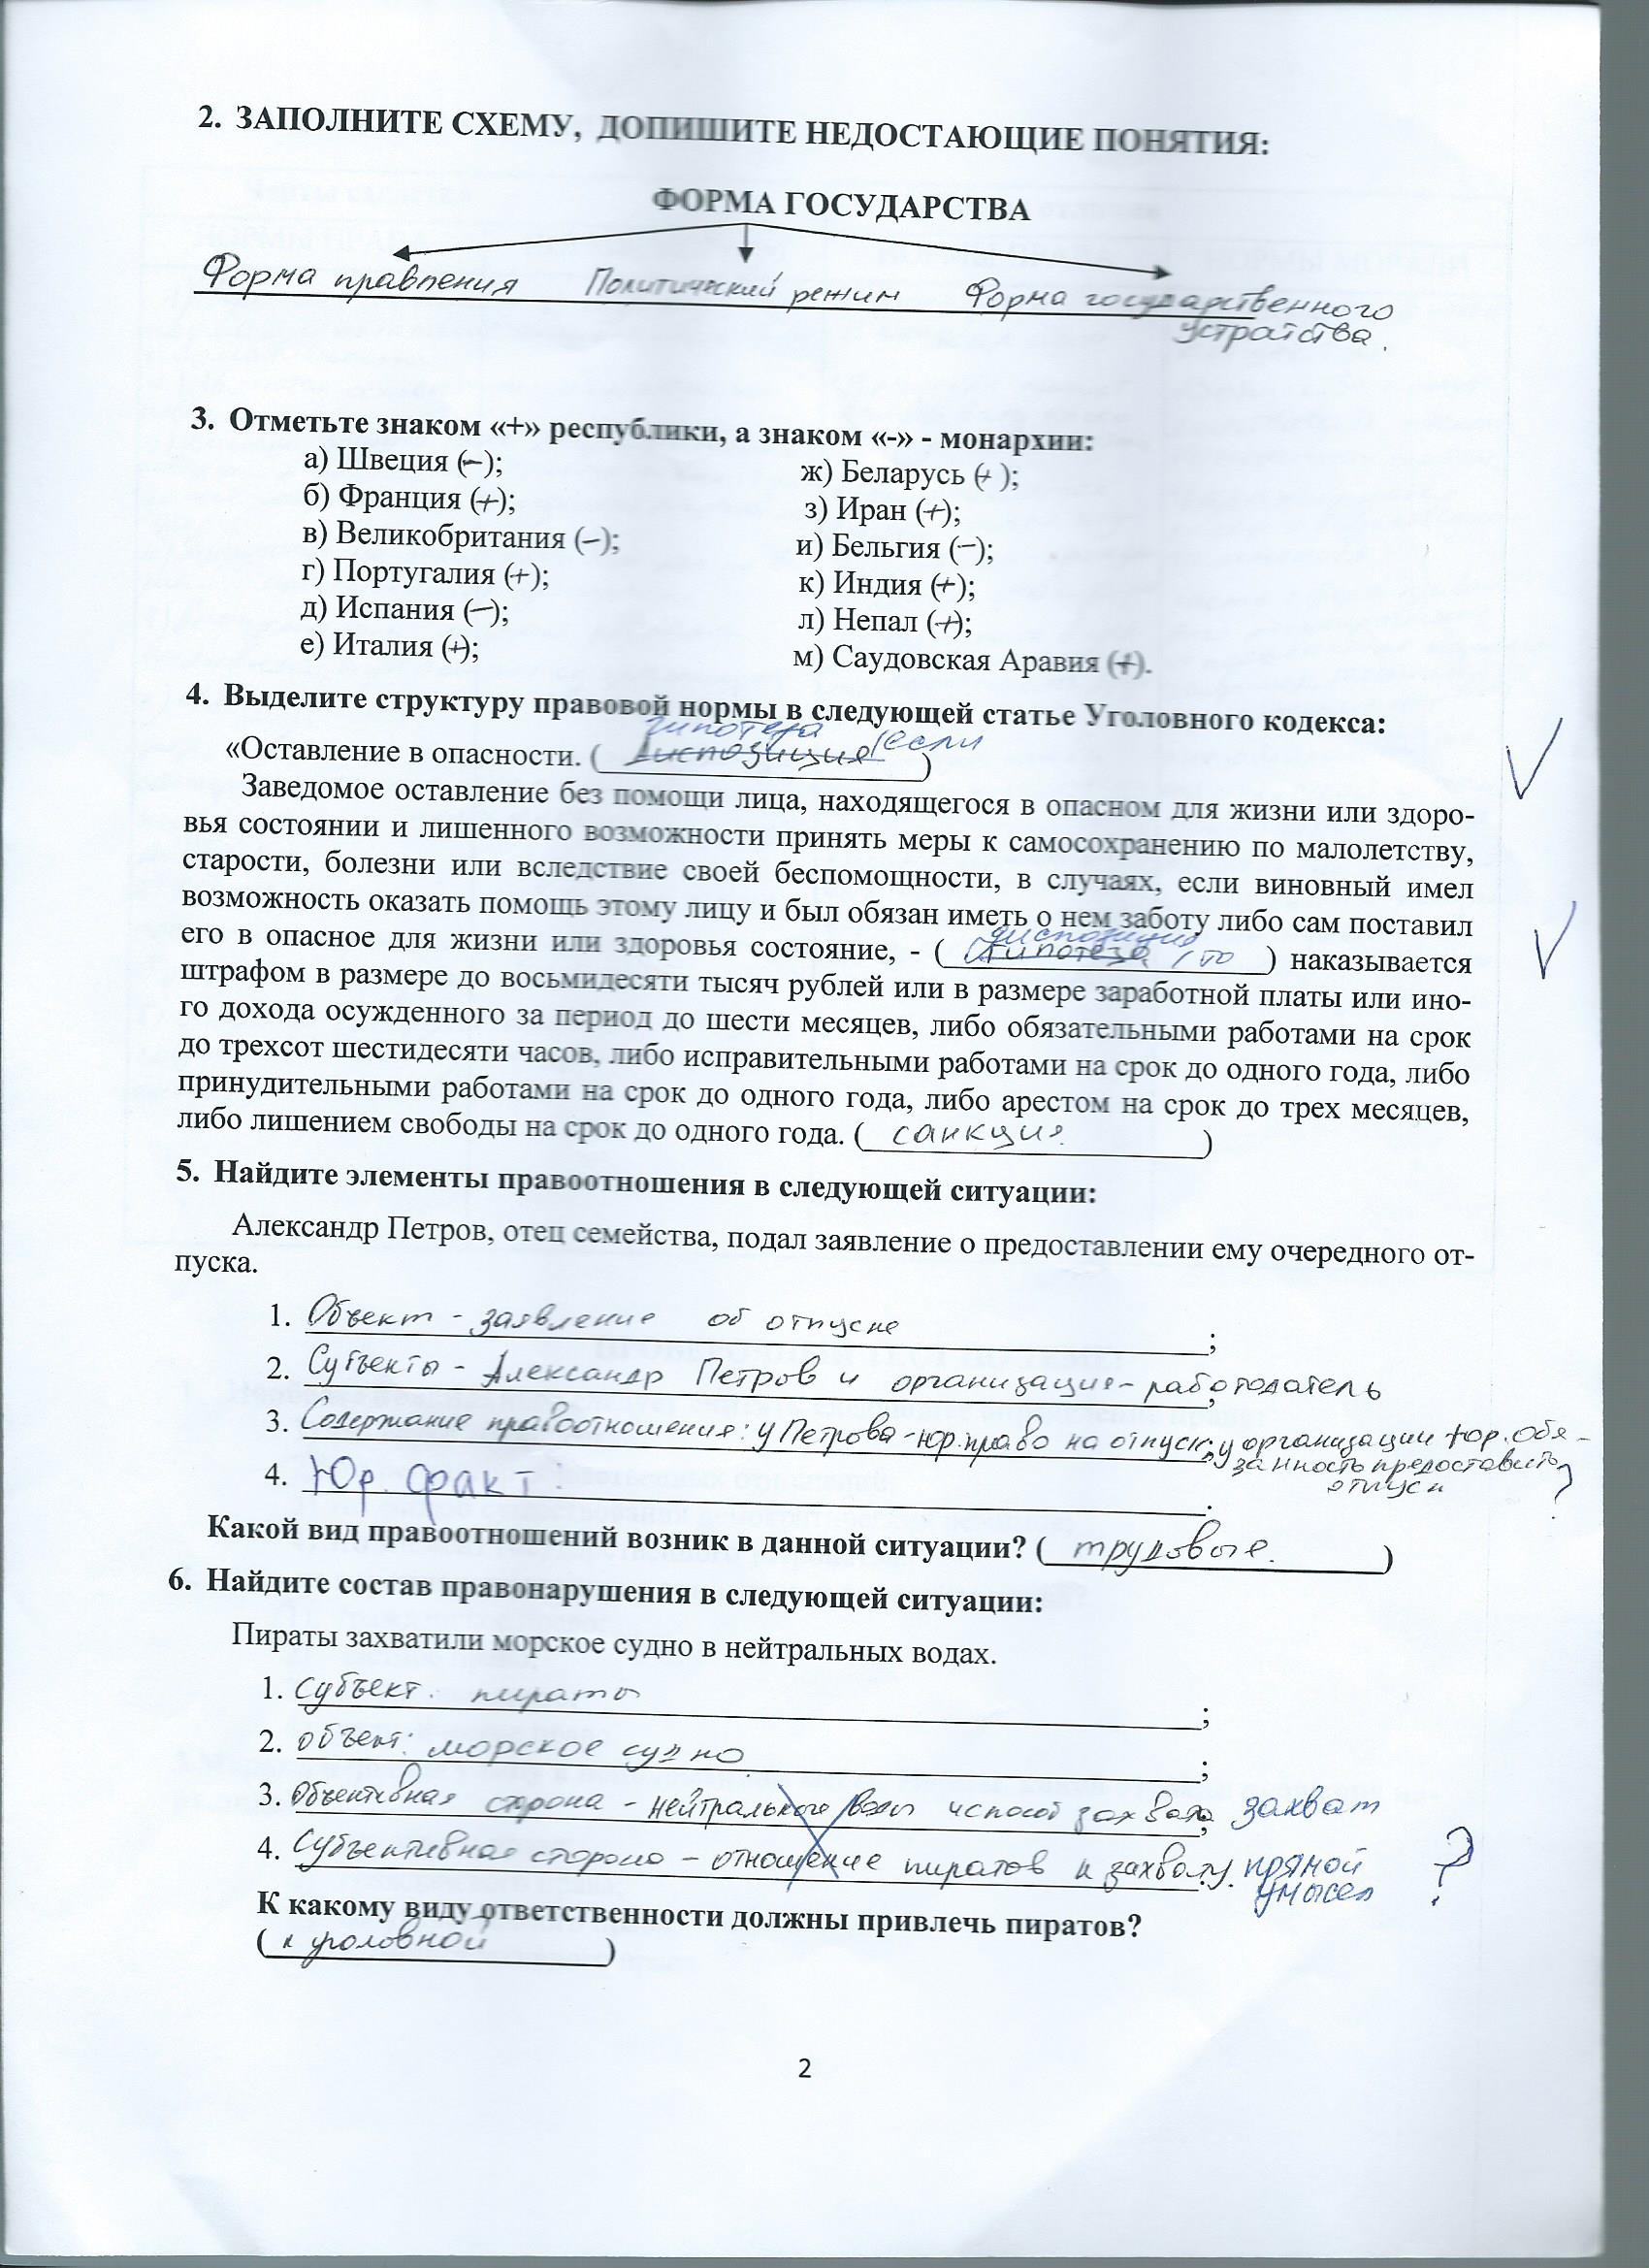 2. ЗАПОЛНИТЕ СХЕМУ, ДОПИШИТЕ НЕДОСТАЮЩИЕ ПОНЯТИЯ:
ФОРМА ГОСУДАРСТВА
Форма правления Политический режим Форма государственного
устройства.
3. Отметьте знаком «+» республики, а знаком «-» - монархии:
а) Швеция (−);
б) Франция (+);
в) Великобритания (−);
г) Португалия (+);
д) Испания (−);
е) Италия (+);
ж) Беларусь (+ );
з) Иран (+);
и) Бельгия (−);
к) Индия (+);
л) Непал (+);
м) Саудовская Аравия (+).
4. Выделите структуру правовой нормы в следующей статье Уголовного кодекса:
гипотеза
«Оставление в опасности. ( диспозиция /если )
Заведомое оставление без помощи лица, находящегося в опасном для жизни или здоро-
вья состоянии и лишенного возможности принять меры к самосохранению по малолетству,
старости, болезни или вследствие своей беспомощности, в случаях, если виновный имел
возможность оказать помощь этому лицу и был обязан иметь о нем заботу либо сам поставил
диспозиция
его в опасное для жизни или здоровья состояние, - ( гипотеза / то ) наказывается
штрафом в размере до восьмидесяти тысяч рублей или в размере заработной платы или ино-
го дохода осужденного за период до шести месяцев, либо обязательными работами на срок
до трехсот шестидесяти часов, либо исправительными работами на срок до одного года, либо
принудительными работами на срок до одного года, либо арестом на срок до трех месяцев,
либо лишением свободы на срок до одного года. ( санкция )
5. Найдите элементы правоотношения в следующей ситуации:
Александр Петров, отец семейства, подал заявление о предоставлении ему очередного от-
пуска.
1. Объект - заявление об отпуске ;
2. Субъекты - Александр Петров и организация - работодатель ;
3. Содержание правоотношения: у Петрова - юр. право на отпуск; у организации юр. обя-
занность предоставить
отпуск
4. Юр. факт : . ?
Какой вид правоотношений возник в данной ситуации? ( трудовые. )
6. Найдите состав правонарушения в следующей ситуации:
Пираты захватили морское судно в нейтральных водах.
1. субъект: пираты ;
2. объект: морское судно ;
3. Объективная сторона - нейтральные воды и способ захвата; захват
4. Субъективная сторона - отношение пиратов к захвату. прямой ?
умысел
К какому виду ответственности должны привлечь пиратов?
( к уголовной )
2